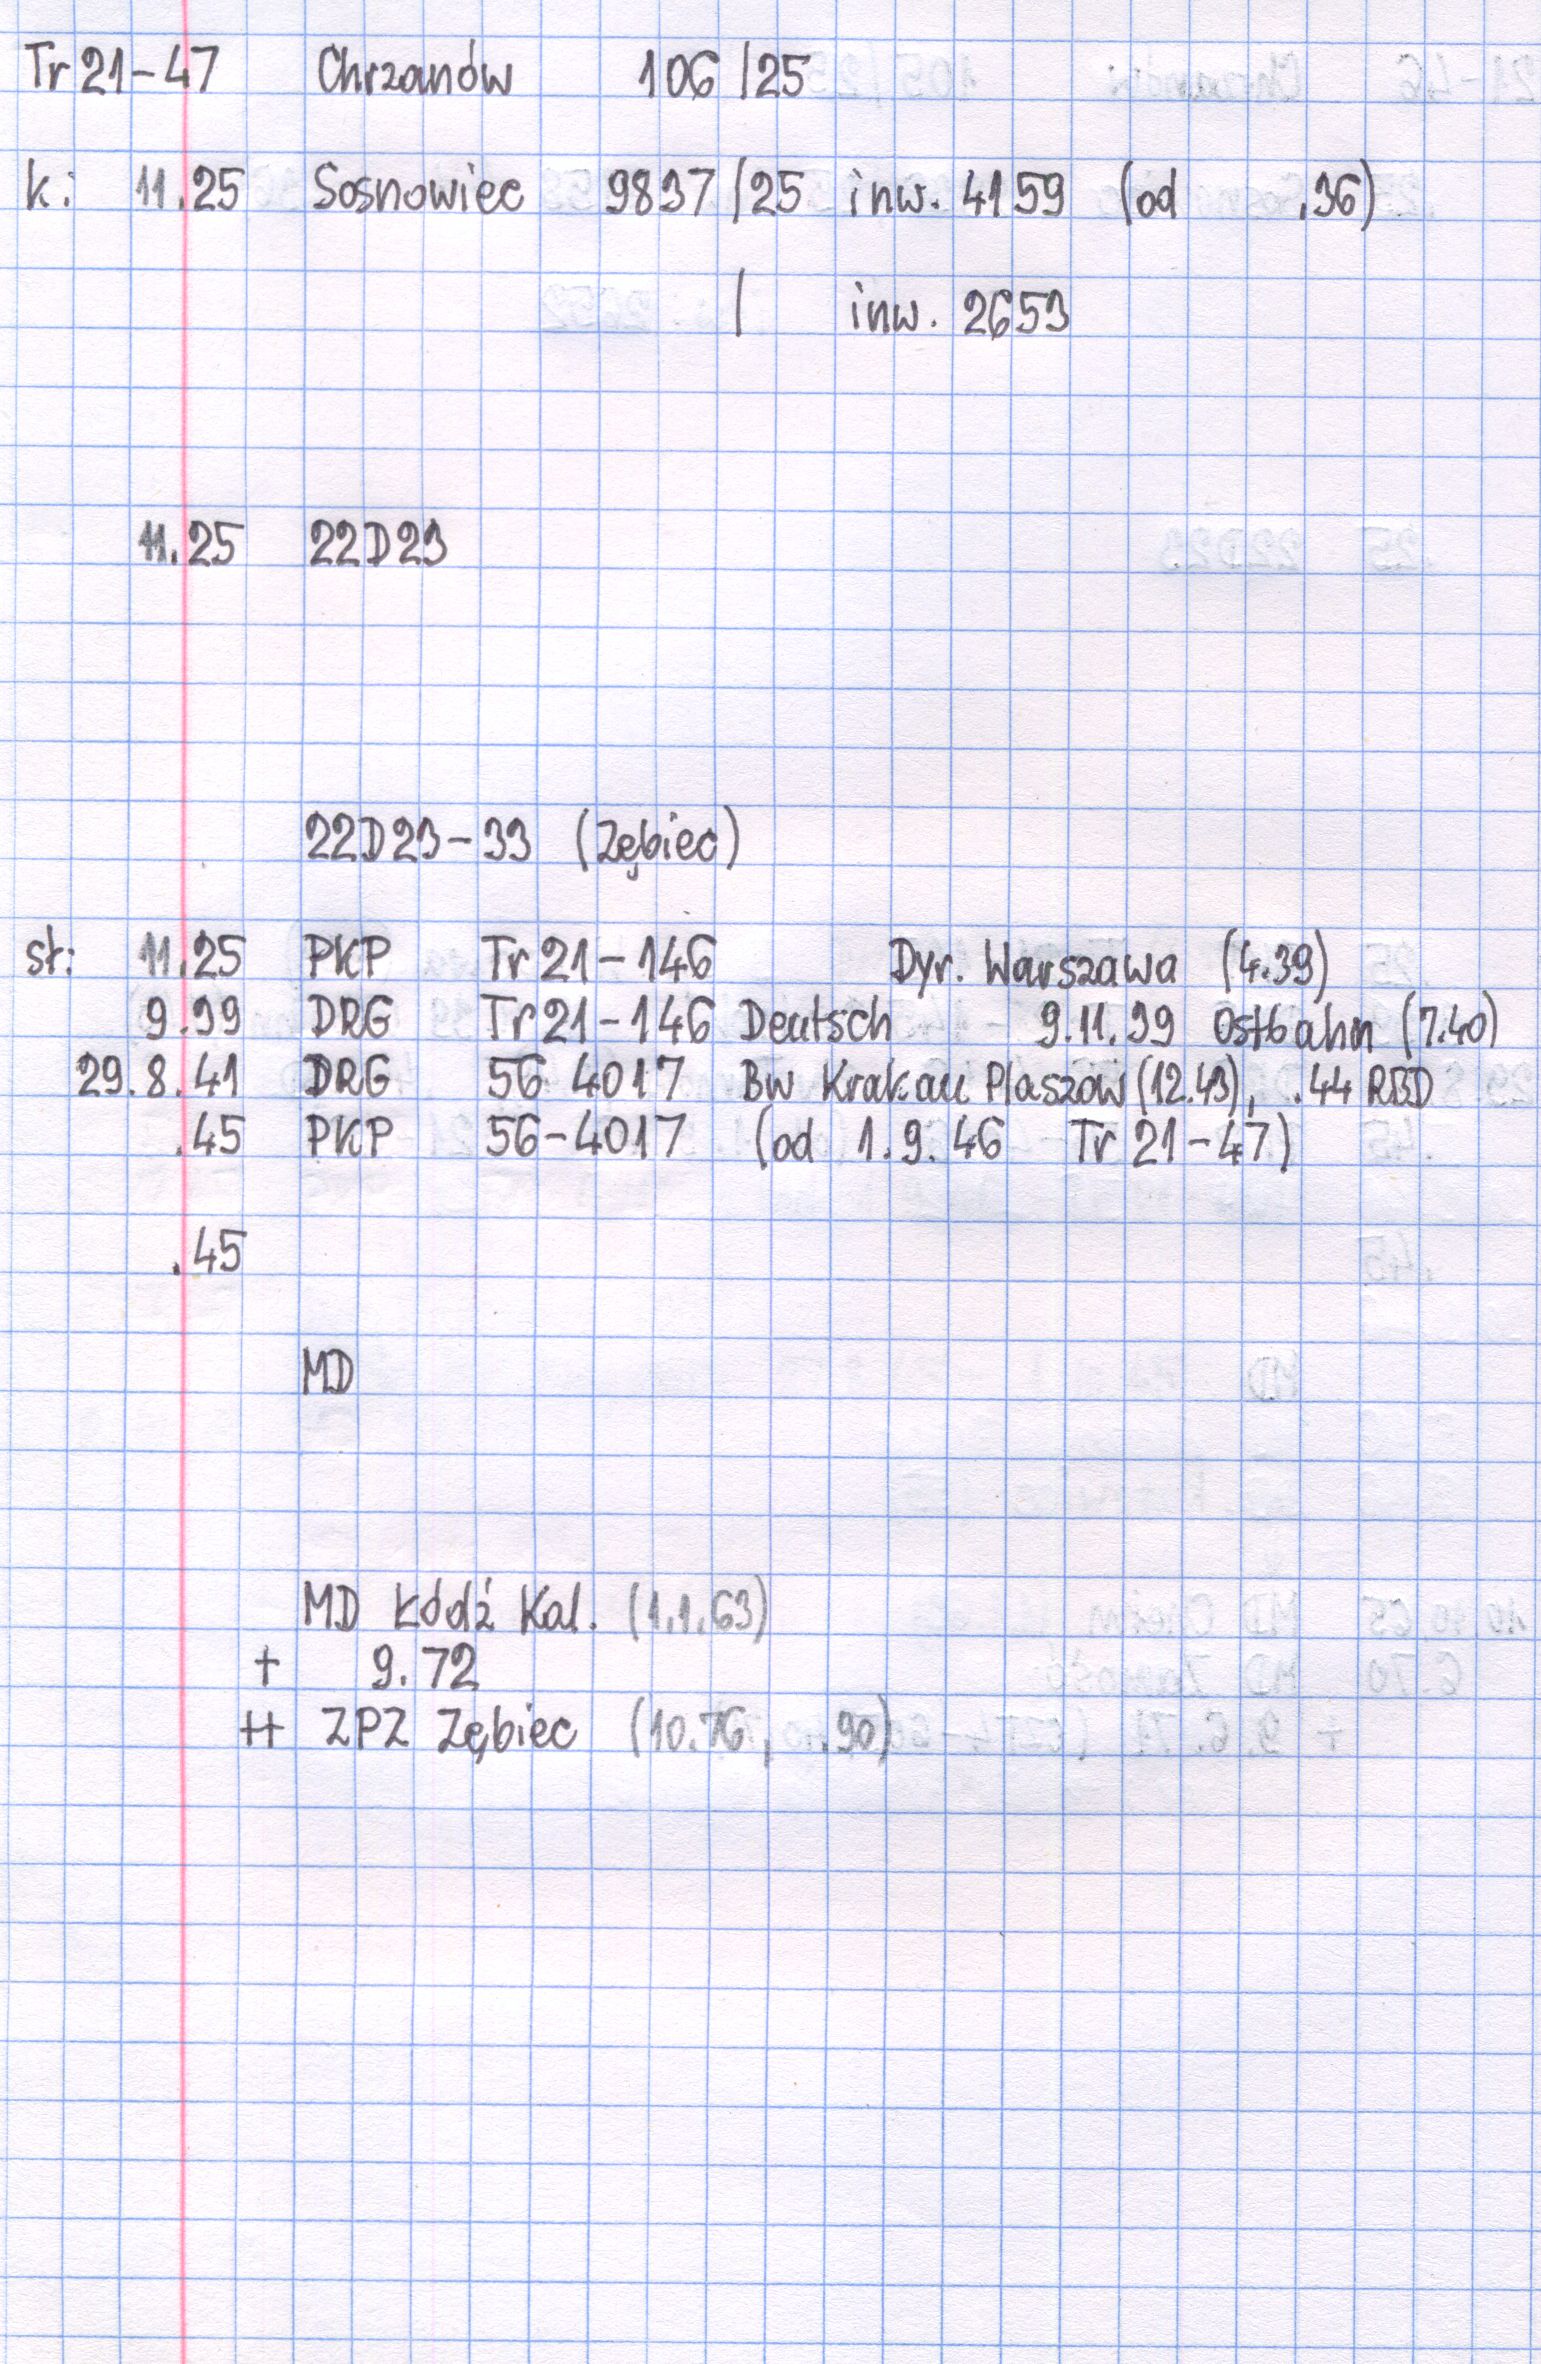 Tr 21-47 Chrzanów 106 /25
k: 11.25 Sosnowiec 9837 /25 inw. 4159 (od .36)
/ inw. 2653
11.25 22D23
22D23-33 (Zębiec)
st: 11.25 PKP Tr 21-146 Dyr. Warszawa (4.39)
9.39 DRG Tr 21-146 Deutsch 9.11.39 Ostbahn (7.40)
29.8.41 DRG 56 4017 Bw Krakau Plaszów (12.43), .44 RBD
.45 PKP 56-4017 (od 1.9.46 Tr 21-47)
.45
MD
MD Łódź Kal. (1.1.63)
+ 9.72
++ ZPZ Zębiec (10.76, .90)